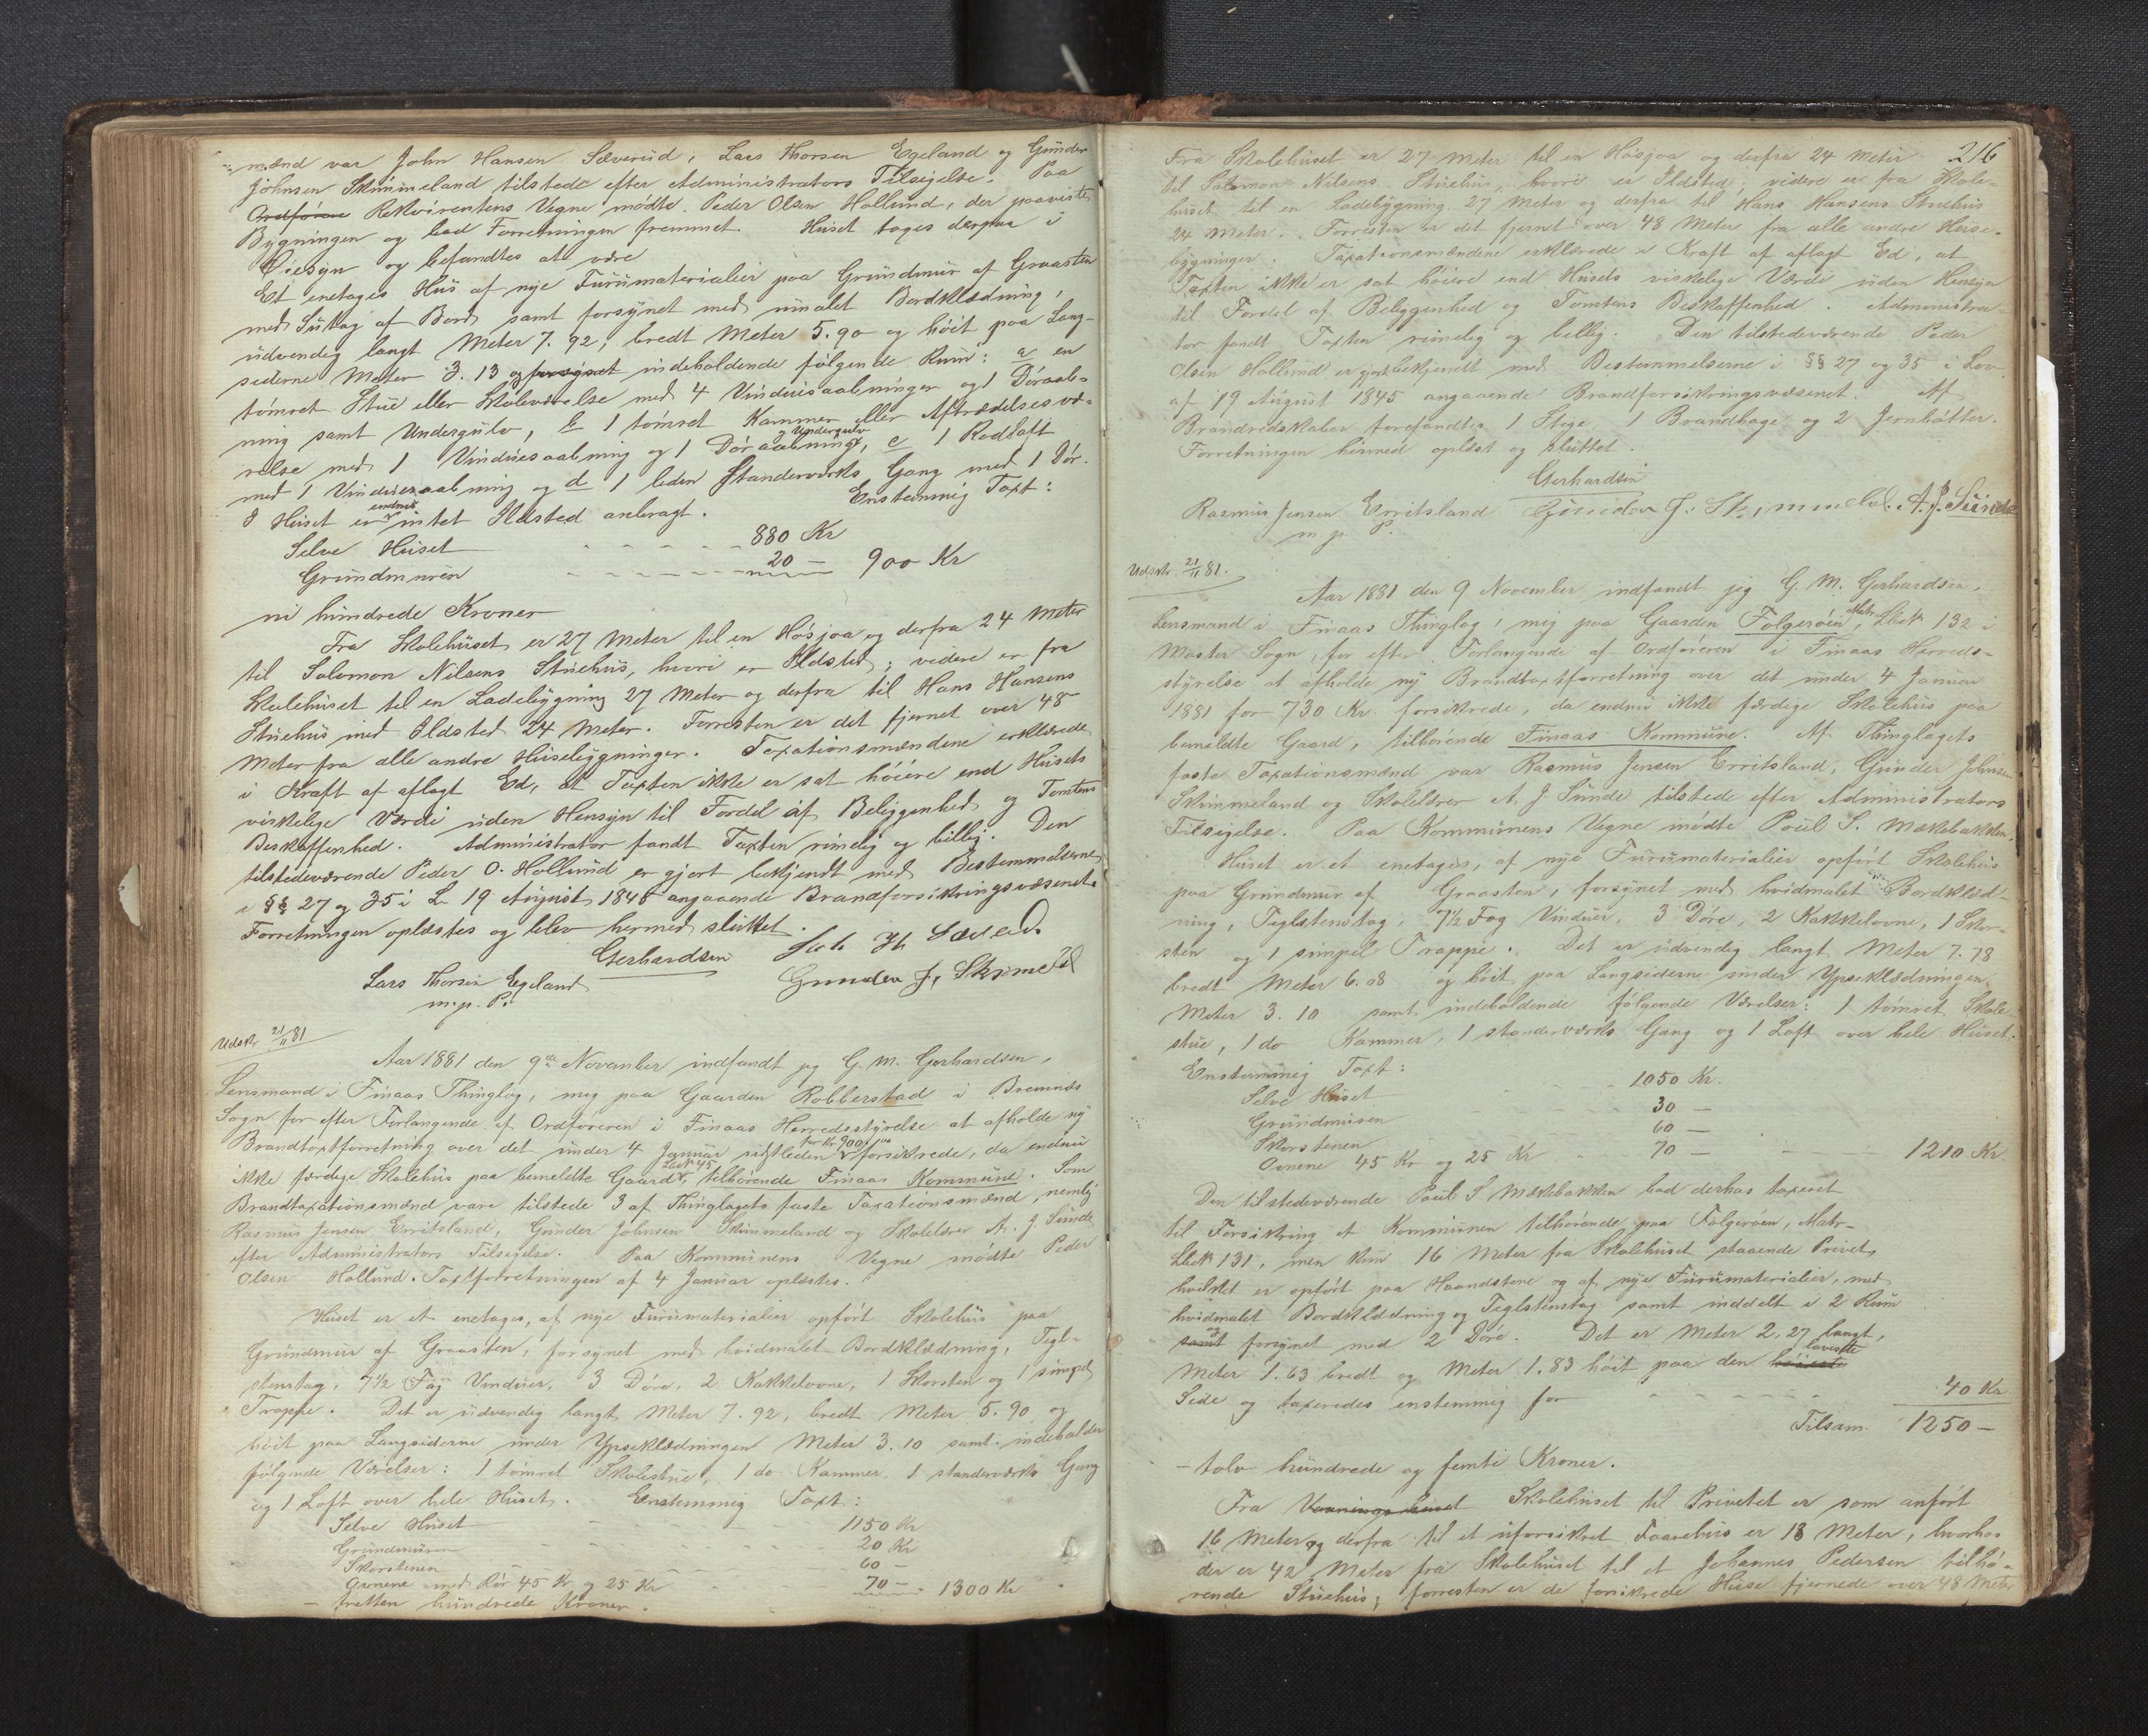 mænd var John Hansen Sæverüd, Lars Thorsen Egeland og Günder
Johnsen Skimmeland tilstede efter Administrators Tilsigelse. Paa
Ordføren Rekvirentens Vegne mødte Peder Olsen Hollund, der paaviste
Bygningen og bad Forretningen fremmet. Huset toges derpaa i
Øiesyn og befandtes at være
Et enetages Hus af nye Furumaterialier paa Grundmur af Graasten
med Sutag af Bord samt forsynet med umalet Bordklædning,
udvendig langt Meter 7.92, bredt Meter 5.90 og høit paa Lang-
siderne Meter 3.13 og forsynet indeholdende følgende Rum: a en
tømret Stue eller Skoleværelse med 4 Vinduesaabninger og 1 Døraab-
ning samt Undergulv, b 1 tømret Kammer eller Aftrædelsesvæ-
relse med 1 Vinduesaabning og 1 Døraabning og Undergulv, c 1 Rodloft
med 1 Vinduesaabning og d 1 liden Standerværks Gang med 1 Dør.
I Huset er endnu intet Ildsted anbragt. Enstemmig Taxt:
Selve Huset 880 Kr
Grundmuren 20 — 900 Kr
ni hundrede Kroner
Fra Skolehuset er 27 Meter til en Høsjaa og derfra 24 Meter
til Salomon Nilsens Stuehus, hvori er Ildsted; videre er fra
Skolehuset til en Ladebygning 27 Meter og derfra til Hans Hansens
Stuehus med Ildsted 24 Meter. Forresten er det fjernet over 48
Meter fra alle andre Husebygninger. Taxationsmændene erklærede
i Kraft af aflagt Ed, at Taxten ikke er sat høiere end Husets
virkelige Værdi uden Hensyn til Fordel af Beliggenhed og Tomtens
Beskaffenhed. Administrator fandt Taxten rimelig og billig. Den
tilstedeværende Peder O. Hollund er gjort bekjendt med Bestemmelserne
i §§ 27 og 35 i L. 19 August 1845 angaaende Brandforsikringsvæsenet.
Forretningen oplæstes og blev hermed sluttet.
Gerhardsen
Lars Thorsen Egeland Gunder J. Skimeld
m. p. P.
Udskr. 21/11 81
Aar 1881 den 9de November indfandt jeg G. M. Gerhardsen,
Lensmand i Finaas Thinglag, mig paa Gaarden Robberstad i Bremnæs
Sogn for efter Forlangende af Ordføreren i Finaas Herredsstyrelse at afholde ny
Brandtaxtforretning over det under 4 Januar sidstleden for Kr 900 forsikrede, da endnu
ikke færdige Skolehus paa bemeldte Gaard, Løb No 45, tilhørende Finaas Kommune. Som
Brandtaxationsmænd vare tilstede 3 af Thinglagets faste Taxationsmænd, nemlig
Rasmus Jensen Erritsland, Gunder Johnsen Skimmeland og Skolelærer A. J. Sunde
efter Administrators Tilsigelse. Paa Kommunens Vegne mødte Peder
Olsen Hollund. Taxtforretningen af 4 Januar oplæstes.
Huset er et enetages, af nye Furumaterialier opført Skolehus paa
Grundmur af Graasten, forsynet med hvidmalet Bordklædning, Tegl-
stenstag, 7½ Fag Vinduer, 3 Døre, 2 Kakkelovne, 1 Skorsten og 1 simpel
Trappe. Det er udvendig langt Meter 7.92, bredt Meter 5.90 og
høit paa Langsiderne under Upseklædningen Meter 3.10 samt indeholder
følgende Værelser: 1 tømret Skolestue, 1 do Kammer, 1 standerværks Gang
og 1 Loft over hele Huset. Enstemmig Taxt:
Selve Huset 1150 Kr
Grundmuren 20 Kr
Skorstenen 60 —
Ovnene med Rør 45 Kr og 25 Kr 70 — 1300 Kr
— tretten hundrede Kroner.
216
Fra Skolehuset er 27 Meter til en Høsjaa og derfra 24 Meter
til Salomon Nilsens Stuehus, hvori er Ildsted; videre er fra Skole-
huset til en Ladebygning 27 Meter og derfra til Hans Hansens Stuehus
24 Meter. Forresten er det fjernet over 48 Meter fra alle andre Huse-
bygninger. Taxationsmændene erklærede i Kraft af aflagt Ed, at
Taxten ikke er sat høiere end Husets virkelige Værdi uden Hensyn
til Fordel af Beliggenhed og Tomtens Beskaffenhed. Administra-
tor fandt Taxten rimelig og billig. Den tilstedeværende Peder
Olsen Hollund er gjort bekjendt med Bestemmelserne i §§ 27 og 35 i Lov
af 19 August 1845 angaaende Brandforsikringsvæsenet. Af
Brandredskaber forefandtes 1 Stige, 1 Brandhage og 2 Jernbøtter.
Forretningen hermed oplæst og sluttet.
Gerhardsen
Rasmus Jensen Erritsland Gunder J. Skimmeld. A. J. Sunde
m. p. P.
Udskr. 21/11 81.
Aar 1881 den 9 November indfandt jeg G. M. Gerhardsen,
Lensmand i Finaas Thinglag, mig paa Gaarden Folgerøen, Matr. Løb No 132 i
Moster Sogn, for efter Forlangende af Ordføreren i Finaas Herreds-
styrelse at afholde ny Brandtaxtforretning over det under 4 Januar
1881 for 730 Kr. forsikrede, da endnu ikke færdige Skolehus paa
bemeldte Gaard, tilhørende Finaas Kommune. Af Thinglagets
faste Taxationsmænd var Rasmus Jensen Erritsland, Gunder Johnsen
Skimmeland og Skolelærer A. J. Sunde tilstede efter Administrators
Tilsigelse. Paa Kommunens Vegne mødte Poul S. Mækebakken.
Huset er et enetages, af nye Furumaterialier opført Skolehus
paa Grundmur af Graasten, forsynet med hvidmalet Bordklæd-
ning, Teglstenstag, 7½ Fag Vinduer, 3 Døre, 2 Kakkelovne, 1 Skor-
sten og 1 simpel Trappe. Det er udvendig langt Meter 7.78
bredt Meter 6.08 og høit paa Langsiderne under Upseklædningen
Meter 3.10 samt indeholdende følgende Værelser: 1 tømret Skole-
stue, 1 do Kammer, 1 standerværks Gang og 1 Loft over hele Huset.
Enstemmig Taxt:
Selve Huset 1050 Kr.
Grundmuren 30 —
Skorstenen 60 —
Ovnene 45 Kr og 25 Kr 70 — 1210 Kr.
Den tilstedeværende Poul S Mækebakken bad derhos taxeret
til Forsikring et Kommunen tilhørende paa Folgerøen, Matr-
Løb No 131, men kun 16 Meter fra Skolehuset staaende Privet,
hvilket er opført paa Haandstene og af nye Furumaterialier, med
hvidmalet Bordklædning og Teglstenstag samt inddelt i 2 Rum
samt og forsynet med 2 Døre. Det er Meter 2.27 langt,
Meter 1.63 bredt og Meter 1.83 høit paa den høieste laveste
Side og taxeredes enstemmig for 40 Kr
Tilsam. 1250 —
— tolv hundrede og femti Kroner.
Fra Vaaningshuset Skolehuset til Privetet er som anført
16 Meter og derfra til et uforsikret Faarehus er 18 Meter, hvorhos
der er 42 Meter fra Skolehuset til et Johannes Pedersen tilhø-
rende Stuehus; forresten er de forsikrede Huse fjernede over 48 Meter